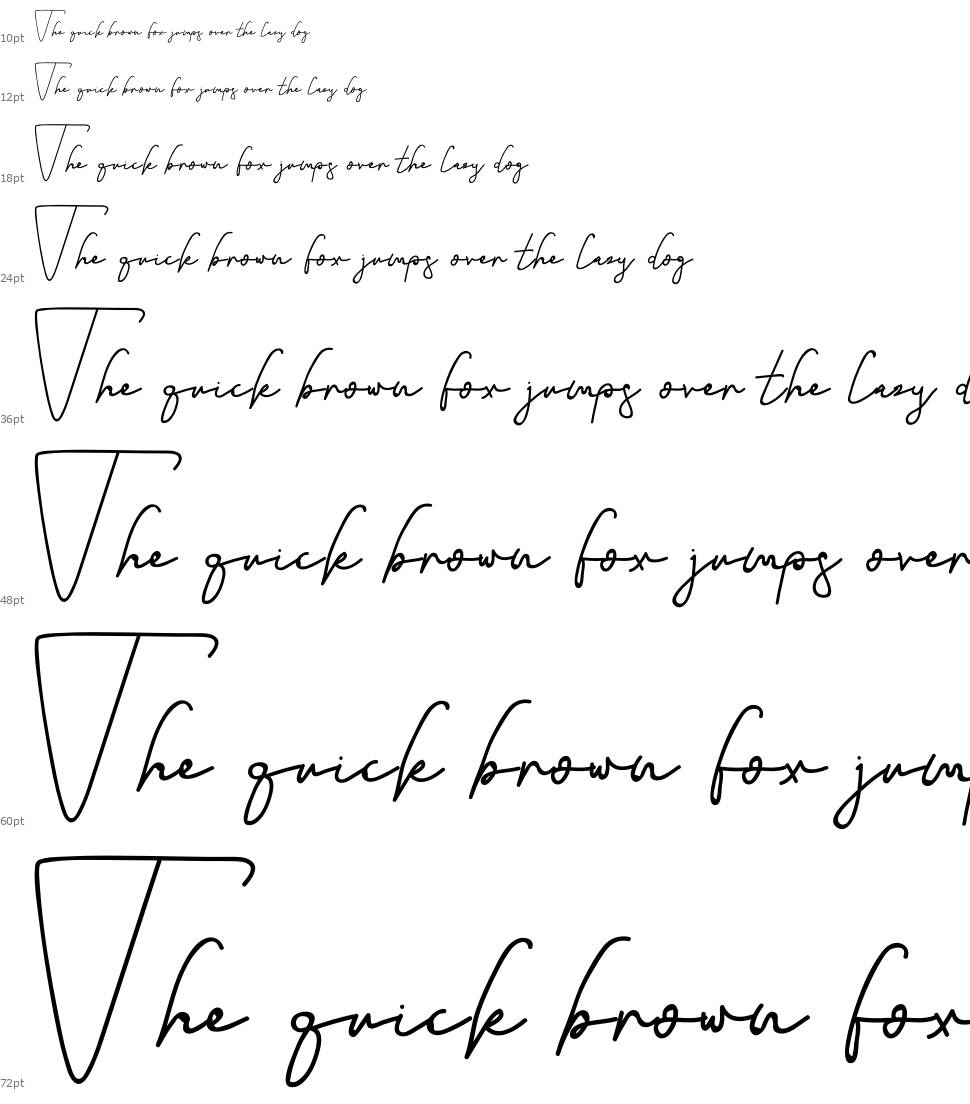 10pt The quick brown fox jumps over the lazy dog
12pt The quick brown fox jumps over the lazy dog
18pt The quick brown fox jumps over the lazy dog
24pt The quick brown fox jumps over the lazy dog
36pt The quick brown fox jumps over the lazy d
48pt The quick brown fox jumps over
60pt The quick brown fox jum
72pt The quick brown fox